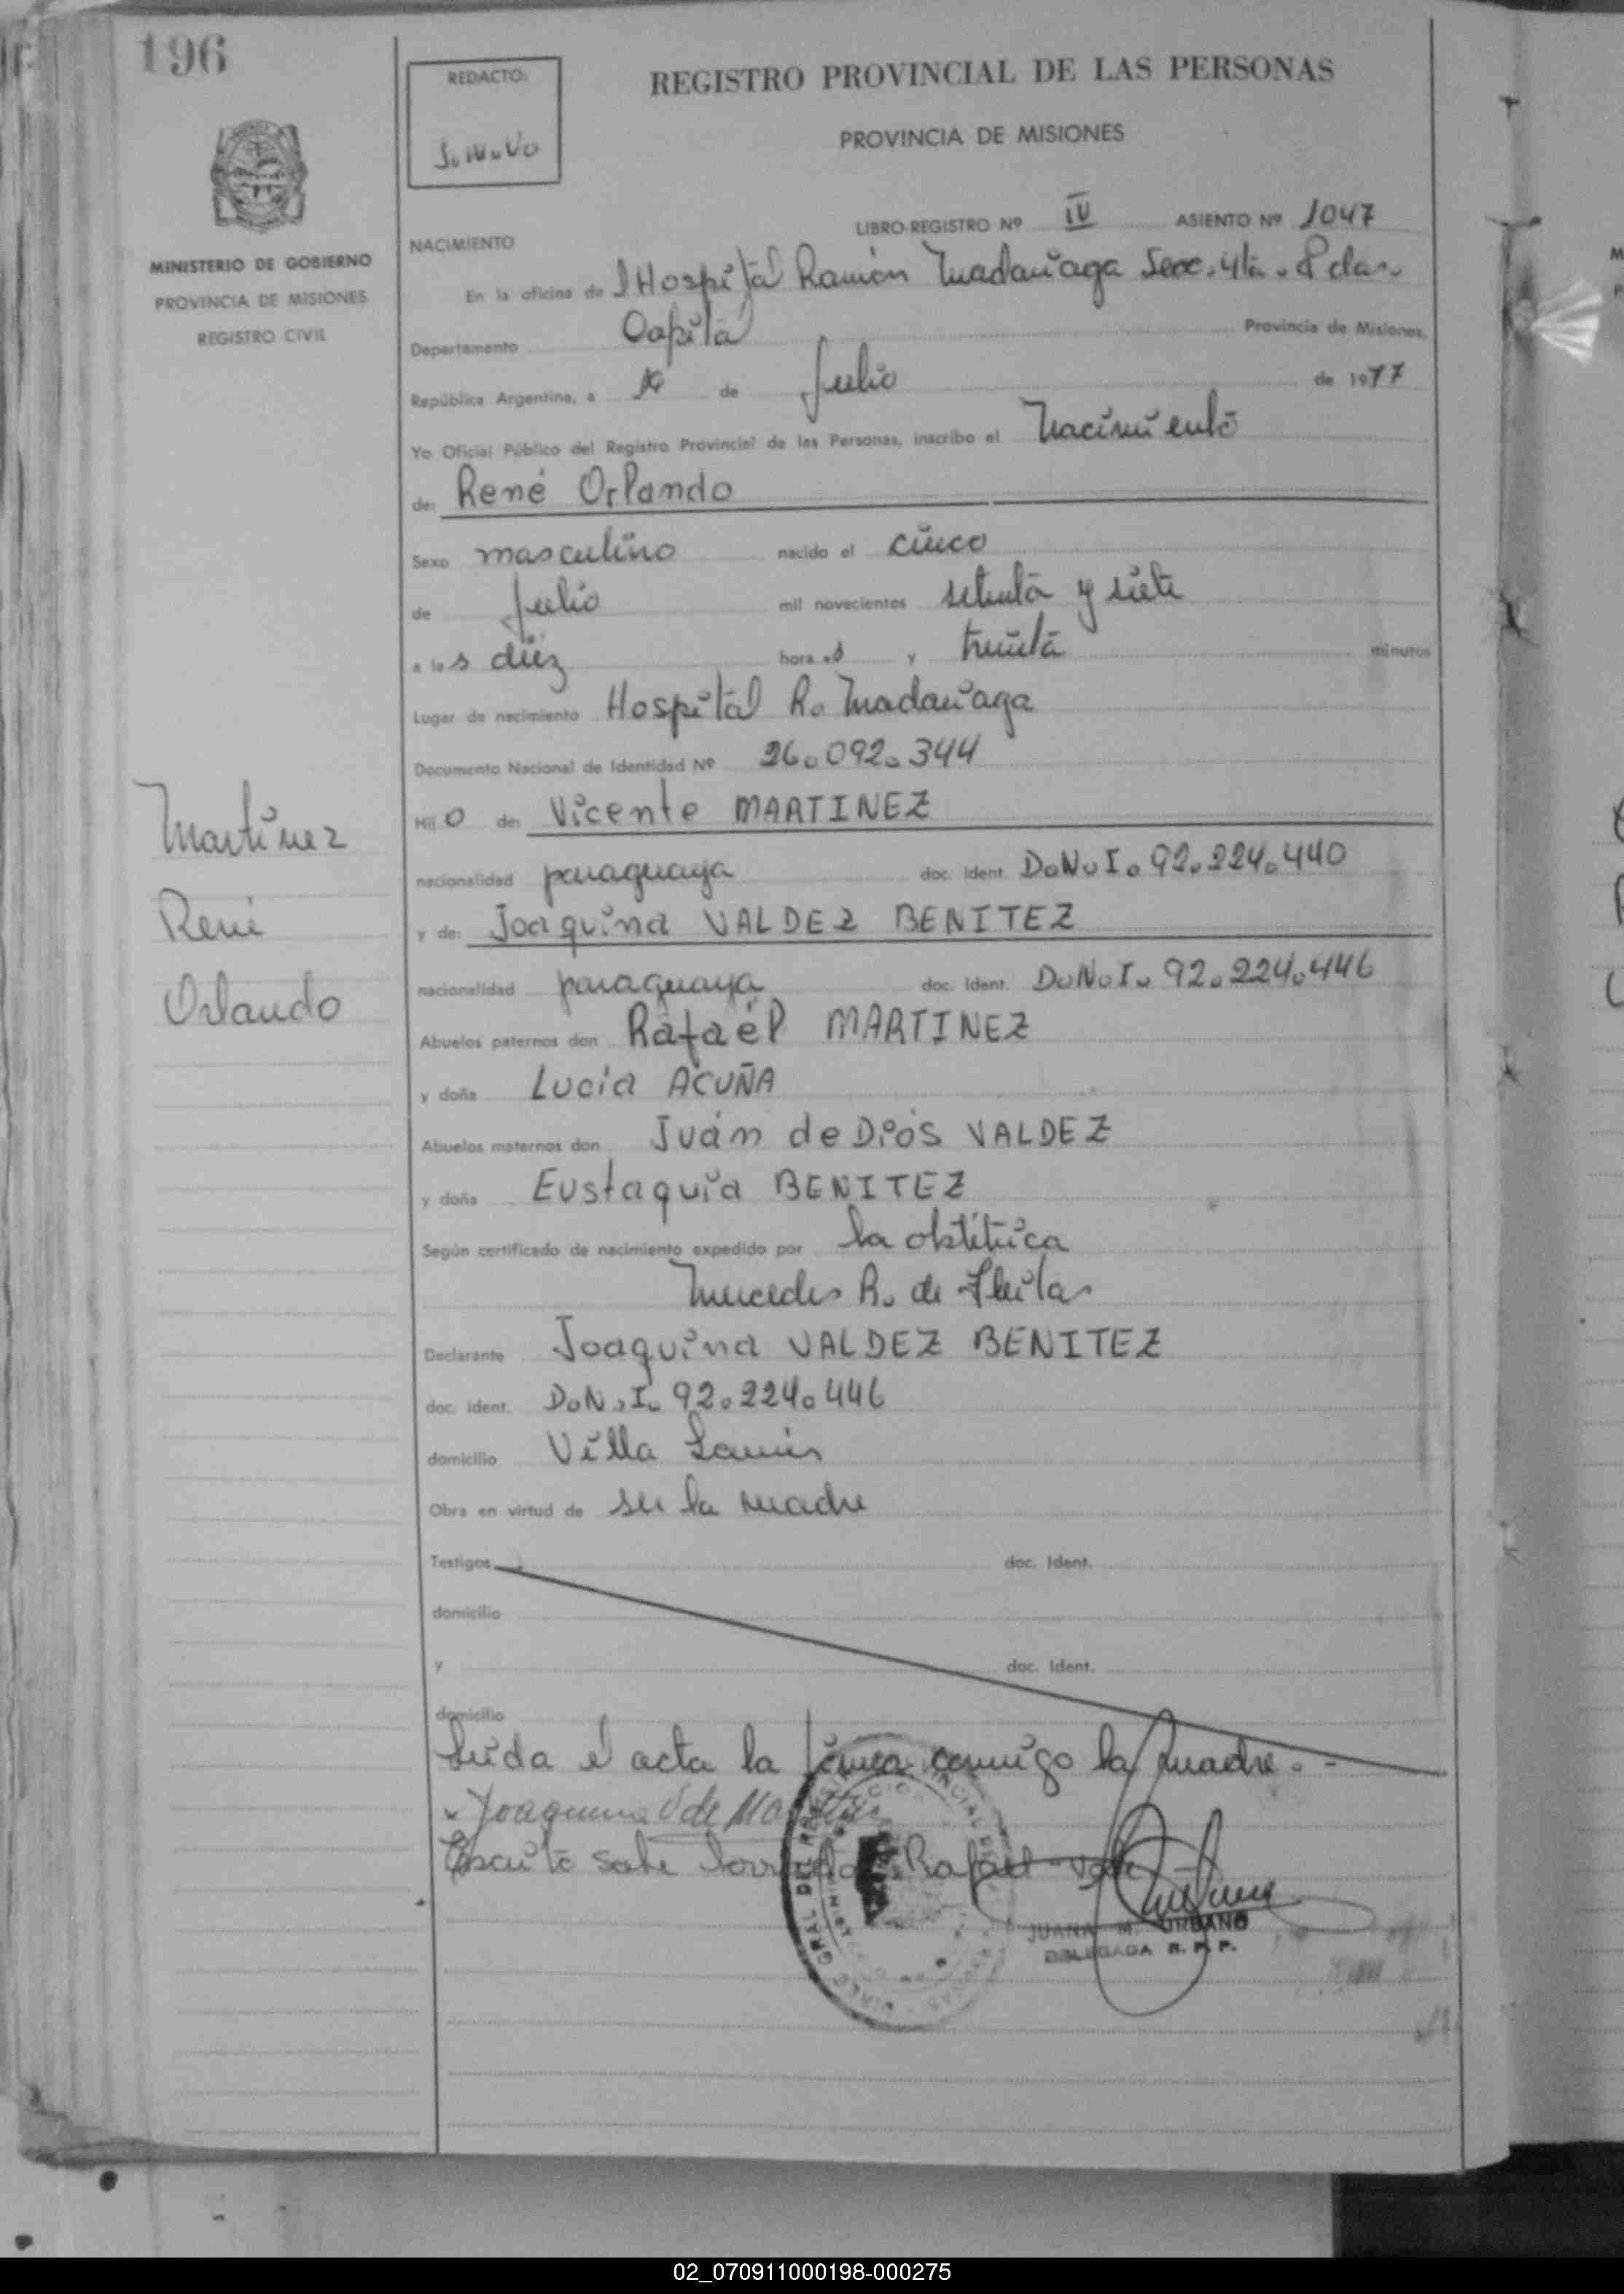 196
REDACTO:
J.M.U.
REGISTRO PROVINCIAL DE LAS PERSONAS
PROVINCIA DE MISIONES
MINISTERIO DE GOBIERNO
PROVINCIA DE MISIONES
REGISTRO CIVIL
LIBRO-REGISTRO Nº IV ASIENTO Nº 1047
NACIMIENTO
En la oficina del Hospital Ramón Madariaga Secc. 4ta. Pdas.
Departamento Capital Provincia de Misiones,
República Argentina, a de Julio de 1977
Yo Oficial Público del Registro Provincial de las Personas, inscribo el Nacimiento
de: René Orlando
Sexo masculino nacido el cinco
de Julio mil novecientos setenta y siete
a las diez horas y treinta minutos
Lugar de nacimiento Hospital R. Madariaga
Documento Nacional de Identidad Nº 26.092.344
Hijo de: Vicente MARTINEZ
nacionalidad paraguaya doc. ident. D.N.I. 92.224.440
y de: Joaquina VALDEZ BENITEZ
nacionalidad paraguaya doc. ident. D.N.I. 92.224.446
Abuelos paternos don Rafaél MARTINEZ
y doña Lucia ACUÑA
Abuelos maternos don Juán de Diós VALDEZ
y doña Eustaquia BENITEZ
Según certificado de nacimiento expedido por la obstétrica
Mercedes R. de Fleitas
Declarante Joaquina VALDEZ BENITEZ
doc. ident. D.N.I. 92.224.446
domicilio Villa Lanús
Obra en virtud de ser la madre
Testigos doc. Ident.
domicilio
y doc. Ident.
domicilio
Leida el acta la firma conmigo la madre.-
Joaquina V de Martinez
Escrito sobre borrado: Rafael - vale -
JUANA M. URBANO
DELEGADA R. P. P.
Martinez
René
Orlando
02_070911000198-000275